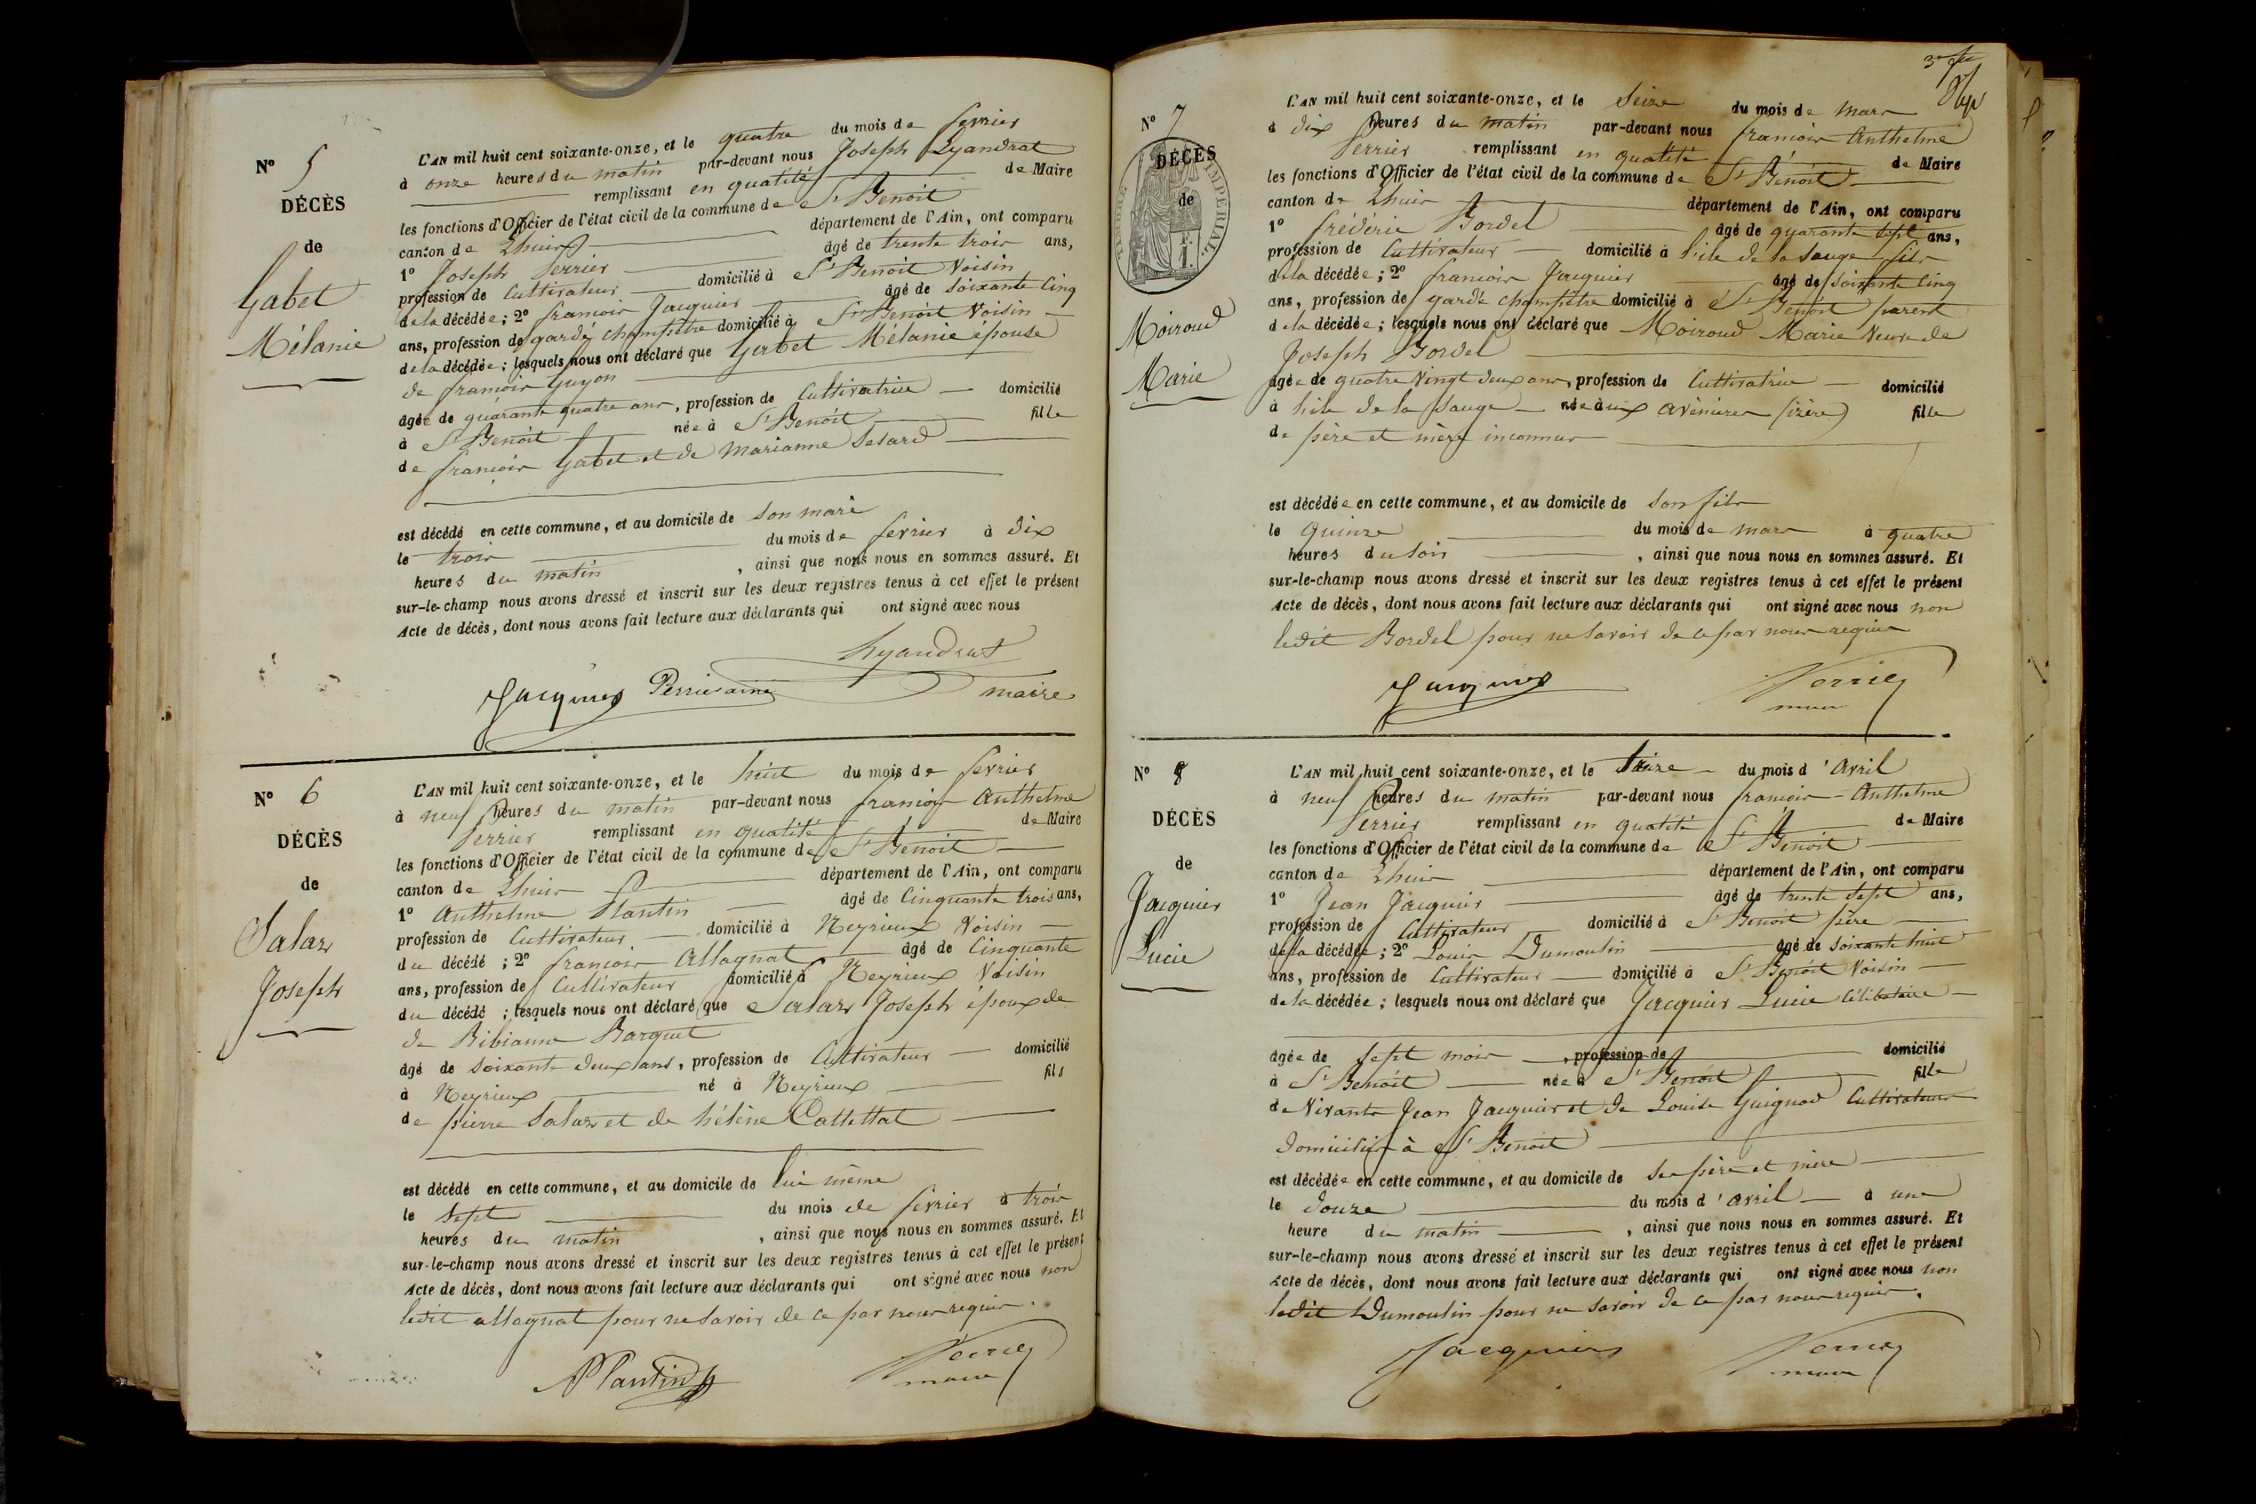 N° 5
DÉCÈS
de
Gabet
Mélanie
L'AN mil huit cent soixante-onze, et le quatre du mois de fevrier
à onze heures du matin par-devant nous Joseph Lyandrat
remplissant en qualité de Maire
les fonctions d'Officier de l'état civil de la commune de St Benoit
canton de Lhuis département de l'Ain, ont comparu
1° Joseph Perrier âgé de trente trois ans,
profession de Cultivateur domicilié à St Benoit Voisin
de la décédée ; 2° francois Jacquier âgé de soixante Cinq
ans, profession de garde champêtre domicilié à St Benoit Voisin
de la décédée ; lesquels nous ont déclaré que Gabet Mélanie épouse
de francois Guyon
âgée de quarante quatre ans, profession de Cultivatrice domicilié
à St Benoit née à St Benoit fille
de francois Gabet et de Marianne
est décédé en cette commune, et au domicile de son mari
le trois du mois de fevrier à dix
heures du matin, ainsi que nous nous en sommes assuré. Et
sur-le-champ nous avons dressé et inscrit sur les deux registres tenus à cet effet le présent
Acte de décès, dont nous avons fait lecture aux déclarants qui ont signé avec nous
Lyandrat
Jacquier Perrier ainé maire
N° 6
DÉCÈS
de
Salaz
Joseph
L'AN mil huit cent soixante-onze, et le huit du mois de fevrier
à neuf heures du matin par-devant nous francois Anthelme
Perrier remplissant en qualité de Maire
les fonctions d'Officier de l'état civil de la commune de St Benoit
canton de Lhuis département de l'Ain, ont comparu
1° Anthelme Plantin âgé de Cinquante trois ans,
profession de Cultivateur domicilié à Neyrieux Voisin
du décédé ; 2° francois Allagnat âgé de Cinquante
ans, profession de Cultivateur domicilié à Neyrieux Voisin
du décédé ; lesquels nous ont déclaré que Salaz Joseph époux de
de Bibianne Barquet
âgé de soixante deux ans, profession de Cultivateur domicilié
à Neyrieux né à Neyrieux fils
de pierre Salaz et de hélène Cattettat
est décédé en cette commune, et au domicile de lui même
le sept du mois de fevrier à trois
heures du matin, ainsi que nous nous en sommes assuré. Et
sur-le-champ nous avons dressé et inscrit sur les deux registres tenus à cet effet le présent
Acte de décès, dont nous avons fait lecture aux déclarants qui ont signé avec nous non
ledit allagnat pour ne savoir de ce par nous requis.
Plantin Perrier
maire
N° 7
DÉCÈS
de
TIMBRE IMPERIAL
Moiroud
Marie
L'AN mil huit cent soixante-onze, et le Seize du mois de mars
à dix heures du matin par-devant nous francois Anthelme
Perrier remplissant en qualité de Maire
les fonctions d'Officier de l'état civil de la commune de St Benoit
canton de Lhuis département de l'Ain, ont comparu
1° frédéric Bordel âgé de quarante sept ans,
profession de Cultivateur domicilié à l'ile de la sauge fils
de la décédée ; 2° francois Jacquier âgé de soixante Cinq
ans, profession de garde champêtre domicilié à St Benoit parent
de la décédée ; lesquels nous ont déclaré que Moiroud Marie Veuve de
Joseph Bordel
âgée de quatre Vingt deux ans, profession de Cultivatrice domicilié
à l'ile de la Sauge née aux avenieres (isère) fille
de père et mère inconnus
est décédée en cette commune, et au domicile de son fils
le quinze du mois de mars à quatre
heures du soir, ainsi que nous nous en sommes assuré. Et
sur-le-champ nous avons dressé et inscrit sur les deux registres tenus à cet effet le présent
Acte de décès, dont nous avons fait lecture aux déclarants qui ont signé avec nous non
ledit Bordel pour ne savoir de ce par nous requis
Jacquier Perrier
maire
N° 8
DÉCÈS
de
Jacquier
Lucie
L'AN mil huit cent soixante-onze, et le treize du mois d'avril
à neuf heures du matin par-devant nous francois Anthelme
Perrier remplissant en qualité de Maire
les fonctions d'Officier de l'état civil de la commune de St Benoit
canton de Lhuis département de l'Ain, ont comparu
1° Jean Jacquier âgé de trente sept ans,
profession de Cultivateur domicilié à St Benoit père
de la décédée ; 2° Louis Dumoulin âgé de soixante huit
ans, profession de Cultivateur domicilié à St Benoit Voisin
de la décédée ; lesquels nous ont déclaré que Jacquier Lucie Célibataire
âgée de sept mois, profession de domicilié
à St Benoit née à St Benoit fille
de Vivants Jean Jacquier et de Louise Guignod Cultivateurs
domiciliés à St Benoit
est décédée en cette commune, et au domicile de ses père et mère
le douze du mois d'avril à une
heure du matin, ainsi que nous nous en sommes assuré. Et
sur-le-champ nous avons dressé et inscrit sur les deux registres tenus à cet effet le présent
Acte de décès, dont nous avons fait lecture aux déclarants qui ont signé avec nous non
ledit Dumoulin pour ne savoir de ce par nous requis.
Jacquier Perrier
maire